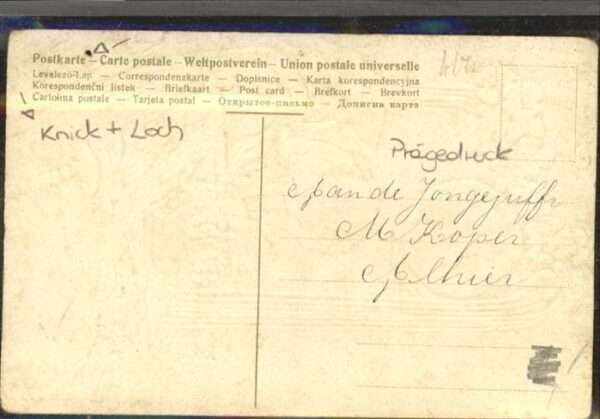 Postkarte – Carte postale – Weltpostverein – Union postale universelle
Levelező-Lap — Correspondenzkarte — Dopisnice — Karta korespondencyjna
Korespondenční lístek — Briefkaart — Post card — Brefkort — Brevkort
Cartolina postale — Tarjeta postal — Открытое-письмо — Дописна карта
Knick + Loch
Prägedruck
Aan de Jongejuffr
M Koper
Alhier